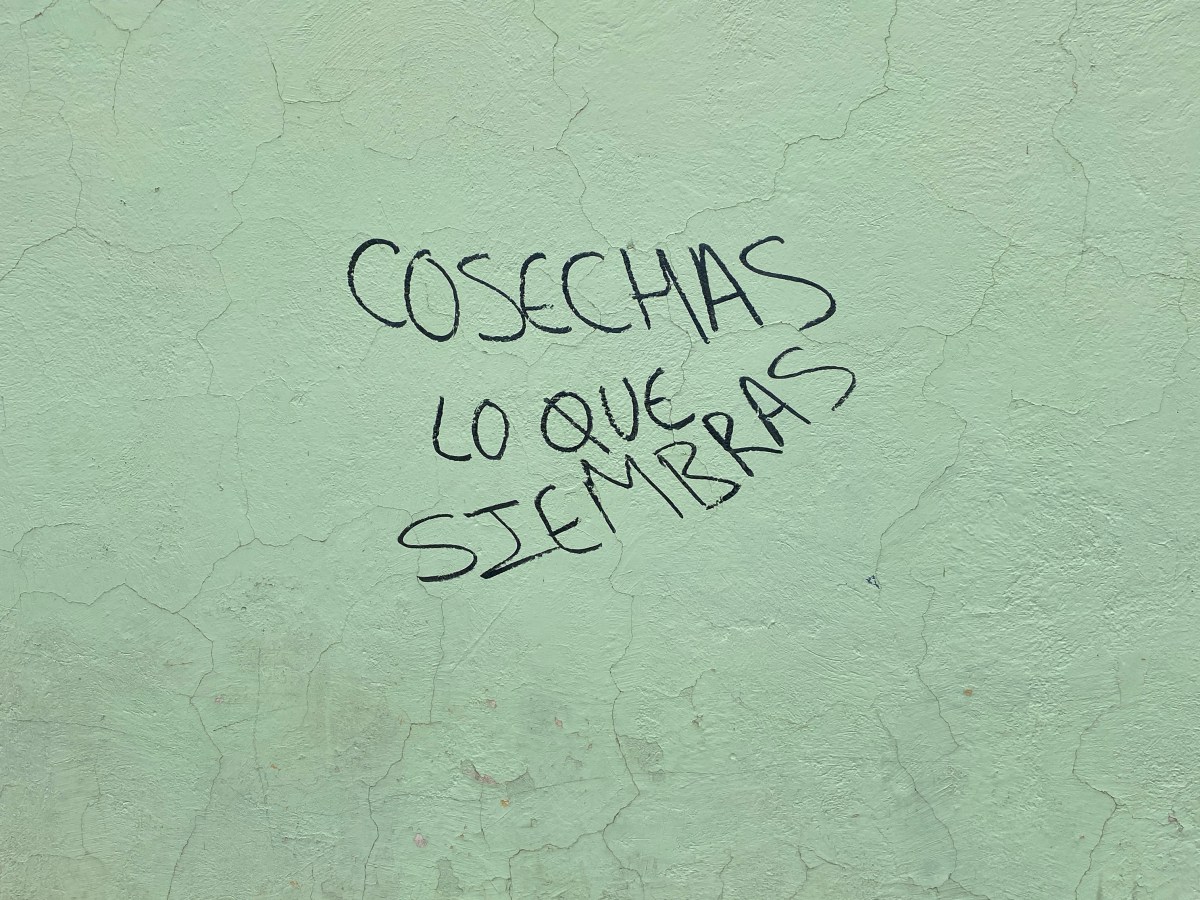 COSECHAS
LO QUE
SIEMBRAS